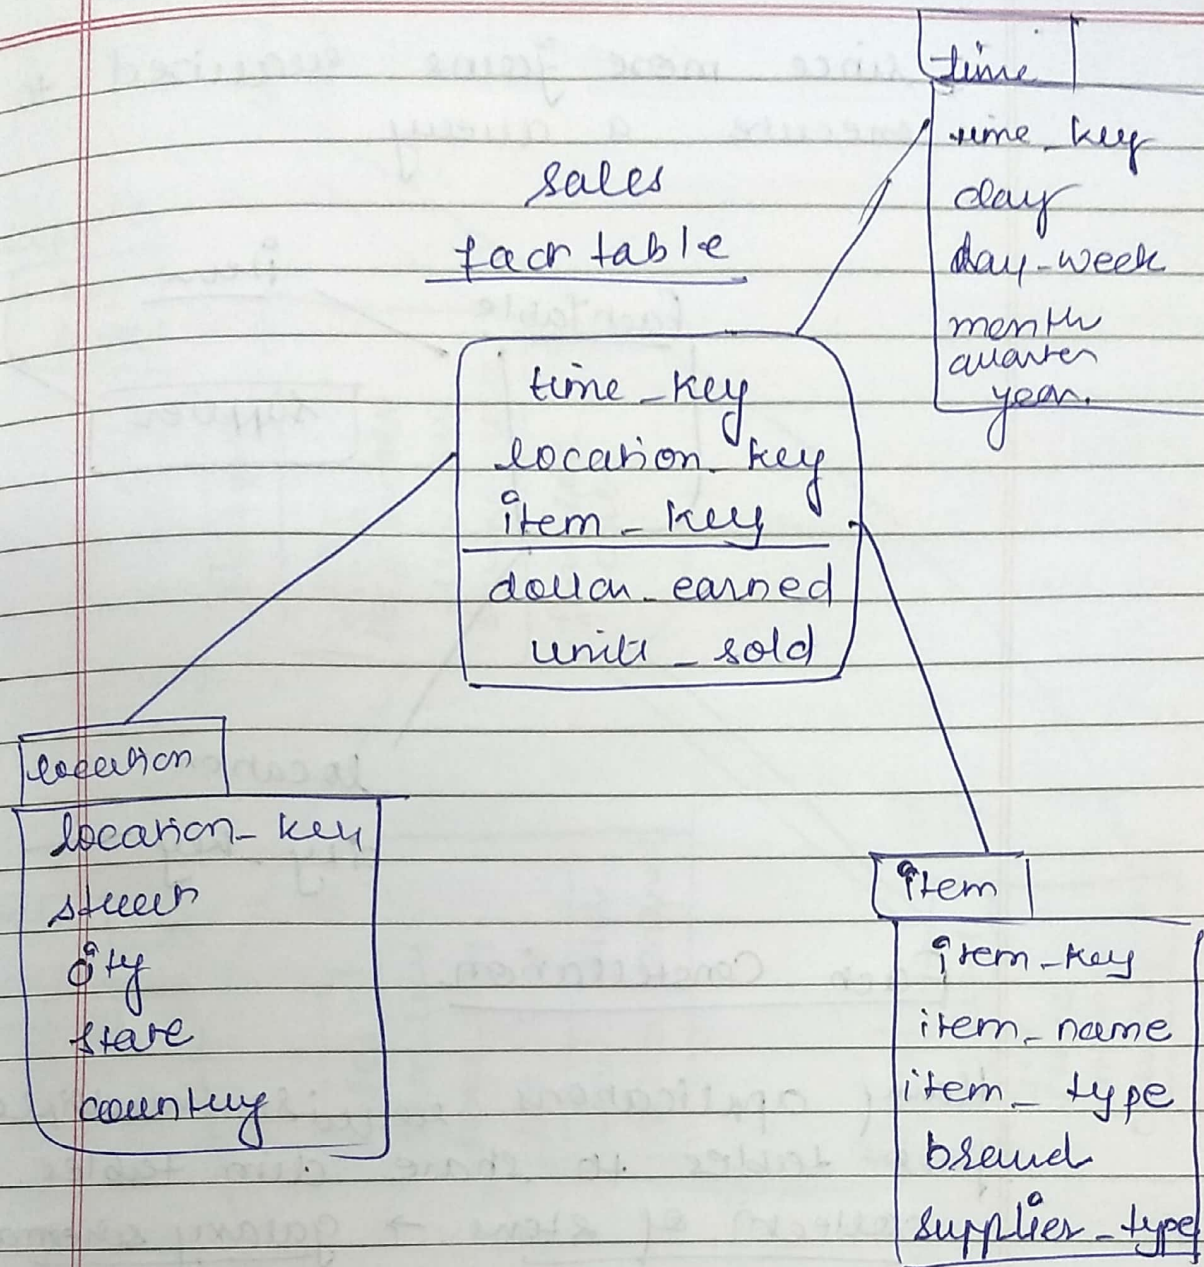 time
time_key
day
day-week
month
quarter
year.
sales
fact table
time_key
location_key
item_key
dollar_earned
units_sold
location
location_key
street
city
state
country
item
item_key
item_name
item_type
brand
supplier_type